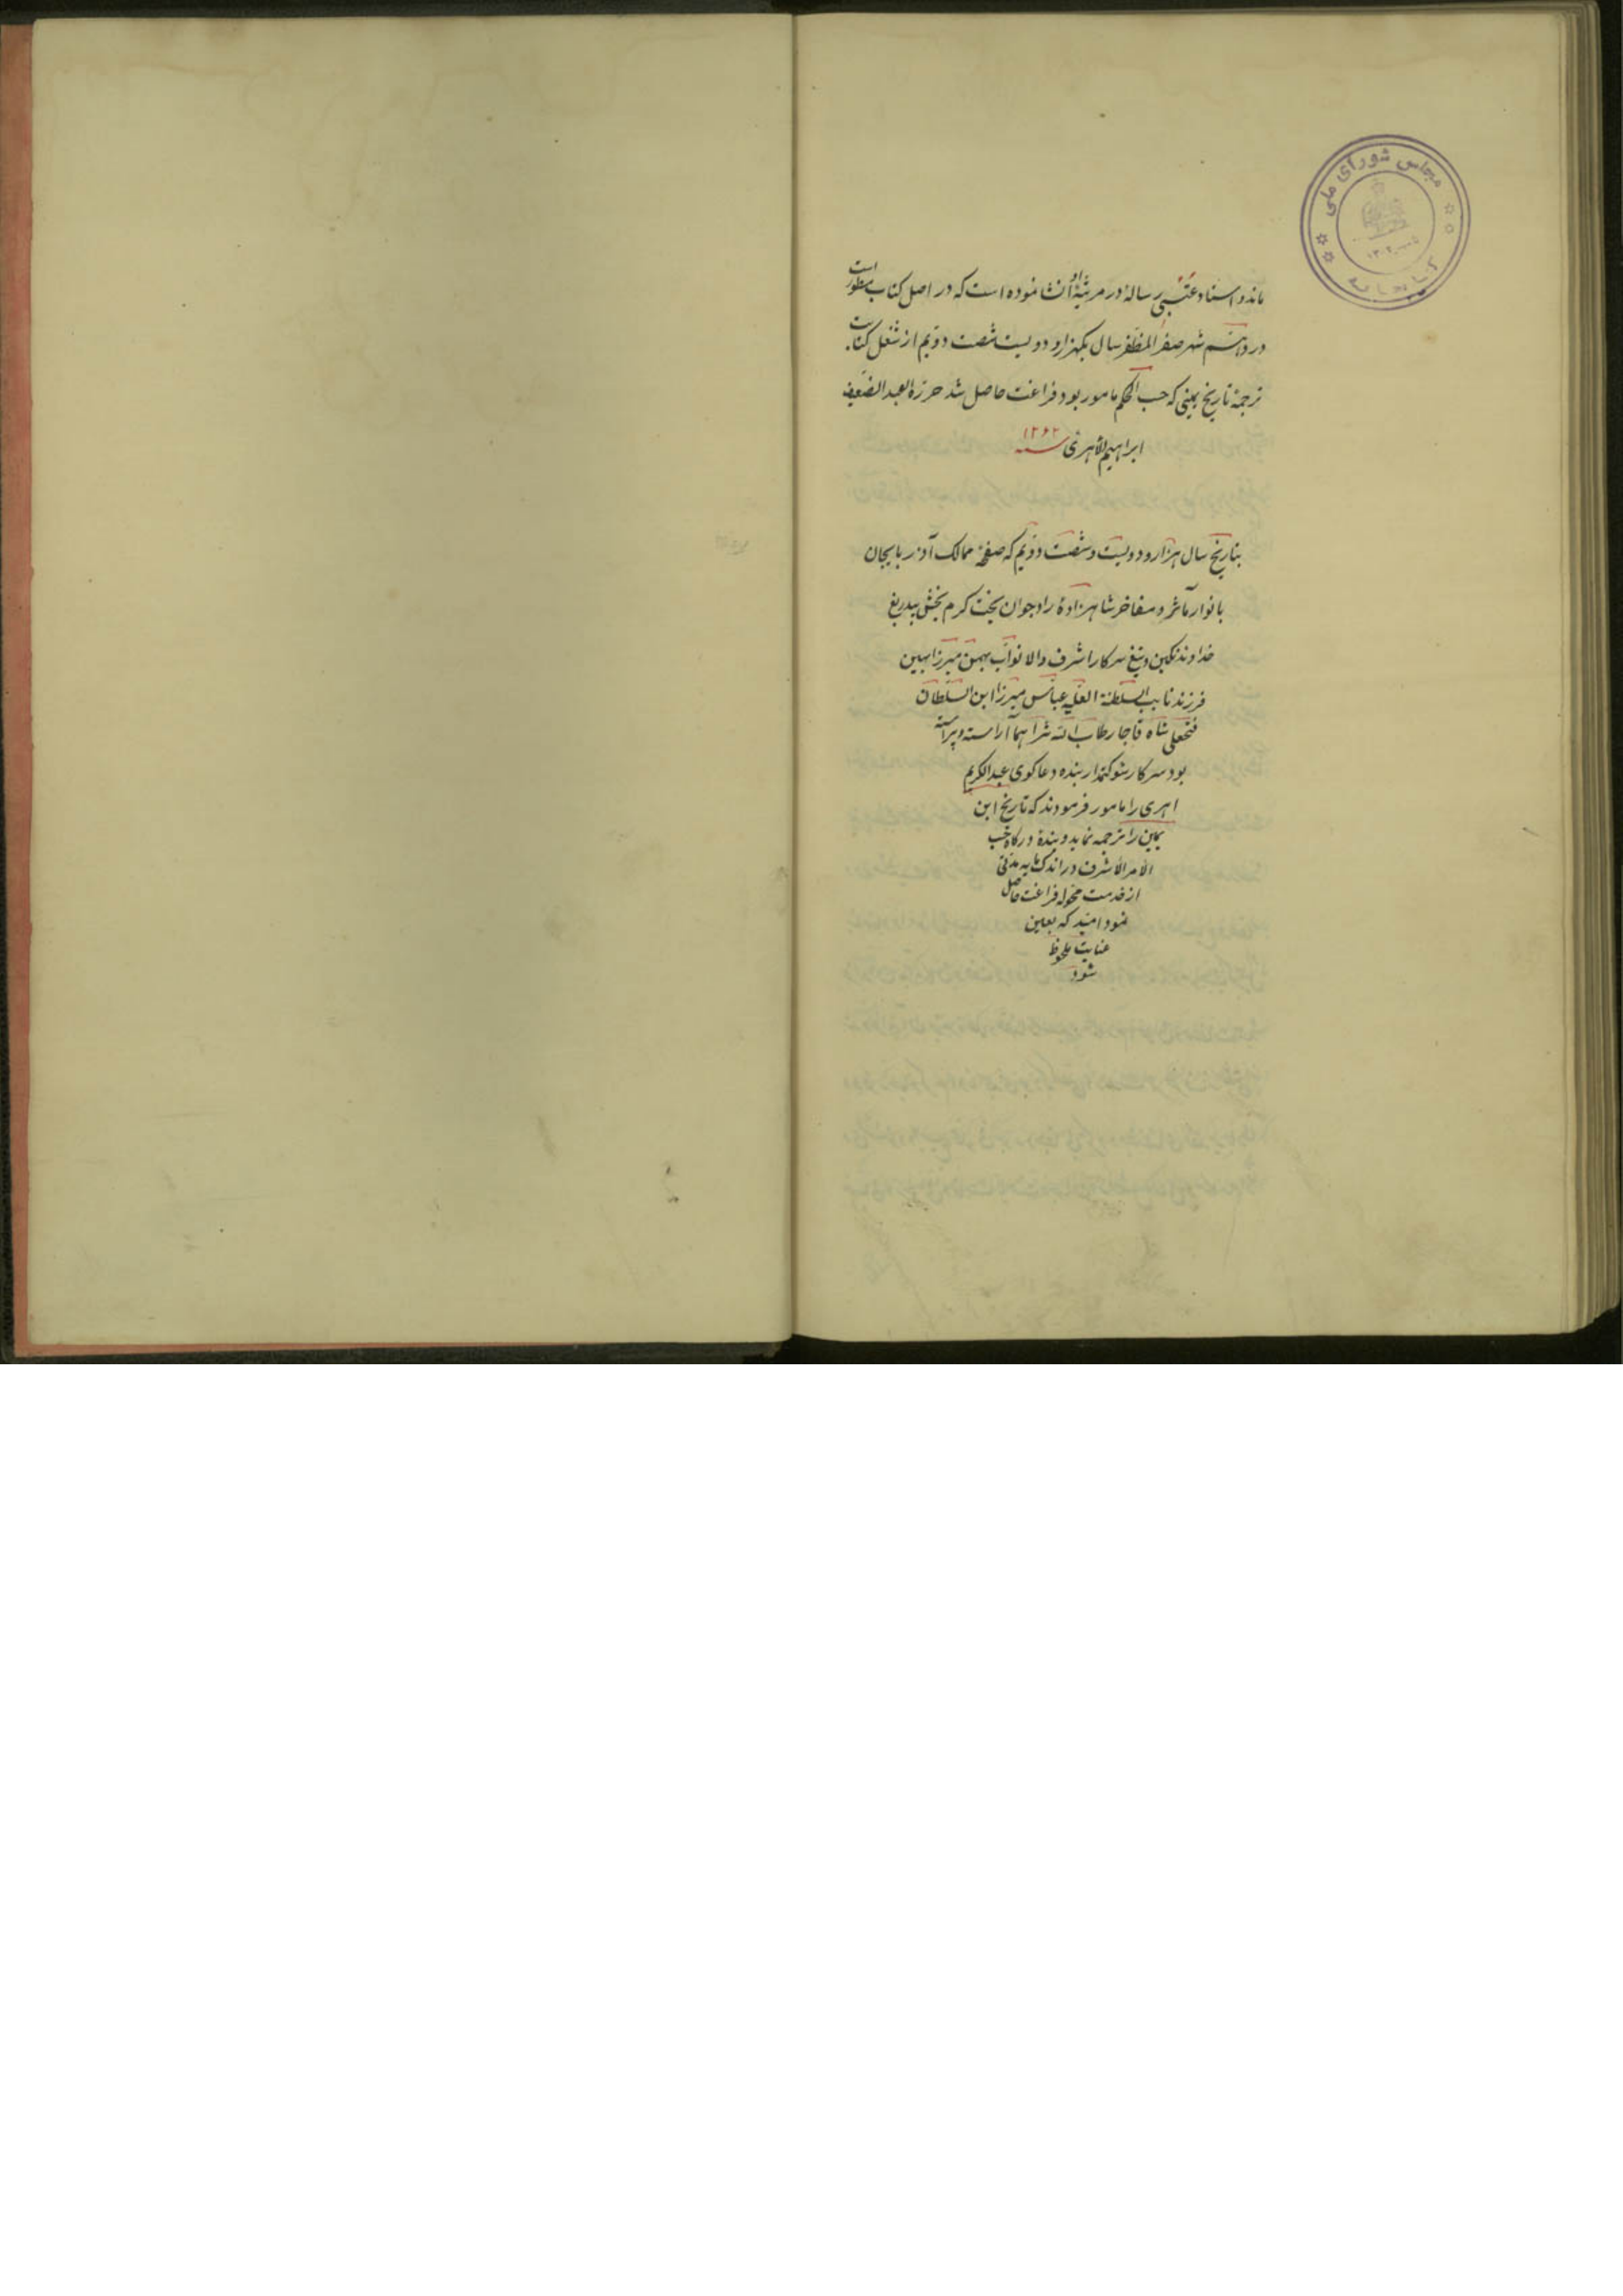 مجلس شورای ملی
کتابخانه
۱۳۰۲
ماند و استاد عتبی رساله در مرثیهٔ او انشا نموده است که در اصل کتاب مسطور است
در دهم شهر صفر المظفر سال یکهزار و دویست شصت دویم از شغل کتابت
ترجمهٔ تاریخ یمینی که حسب الحکم مامور بود فراغت حاصل شد حرّره العبد الضعیف
ابراهیم الاهری سنه ۱۲۶۲
بتاریخ سال هزار و دویست و شصت دویم که صفحهٔ ممالک آذربایجان
بانوار مآثر و مفاخر شاهزادهٔ راد جوان بخت کرم بخش بیدریغ
خداوند نکین و تیغ سرکار اشرف والا نوّاب بهمن میرزا بهین
فرزند نایب السلطنة العلیه عباس میرزا ابن السلطان
فتحعلی شاه قاجار طاب الله ثراهما آراسته و پیراسته
بود سرکار شوکتمدار بنده دعاکوی عبدالکریم
اهری را مامور فرمودند که تاریخ ابن
یمین را ترجمه نماید و بندهٔ درکاه حسب
الامر الاشرف در اندک مایه مدّتی
از خدمت محوّله فراغت حاصل
نمود امید که بعین
عنایت ملحوظ
شود